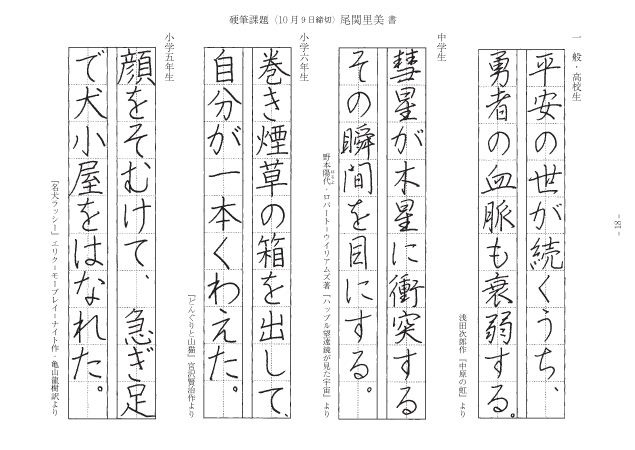 硬筆課題（10月9日締切）尾関里美 書
一般・高校生
平安の世が続くうち、
勇者の血脈も衰弱する。
浅田次郎作『中原の虹』より
中学生
彗星が木星に衝突する
その瞬間を目にする。
野本陽代・ロバート＝ウイリアムズ著『ハッブル望遠鏡が見た宇宙』より
小学六年生
巻き煙草の箱を出して、
自分が一本くわえた。
『どんぐりと山猫』宮沢賢治作より
小学五年生
顔をそむけて、急ぎ足
で犬小屋をはなれた。
『名犬ラッシー』エリク＝モーブレイ＝ナイト作 亀山龍樹訳より